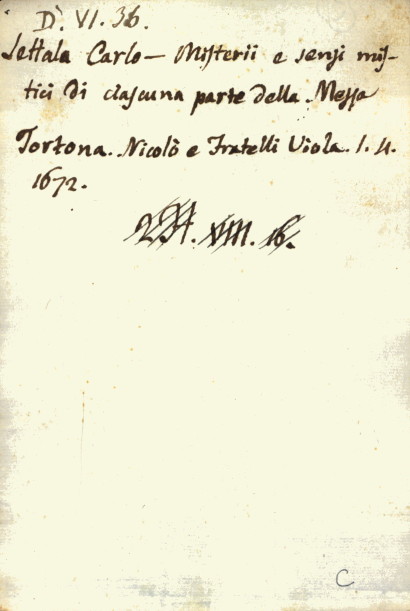 D. VI. 36.
Settala Carlo — Misterii e sensi mis-
tici di ciascuna parte della Messa
Tortona. Nicolò e Fratelli Viola. 1. 4.
1672.
XVIII. 16.
C